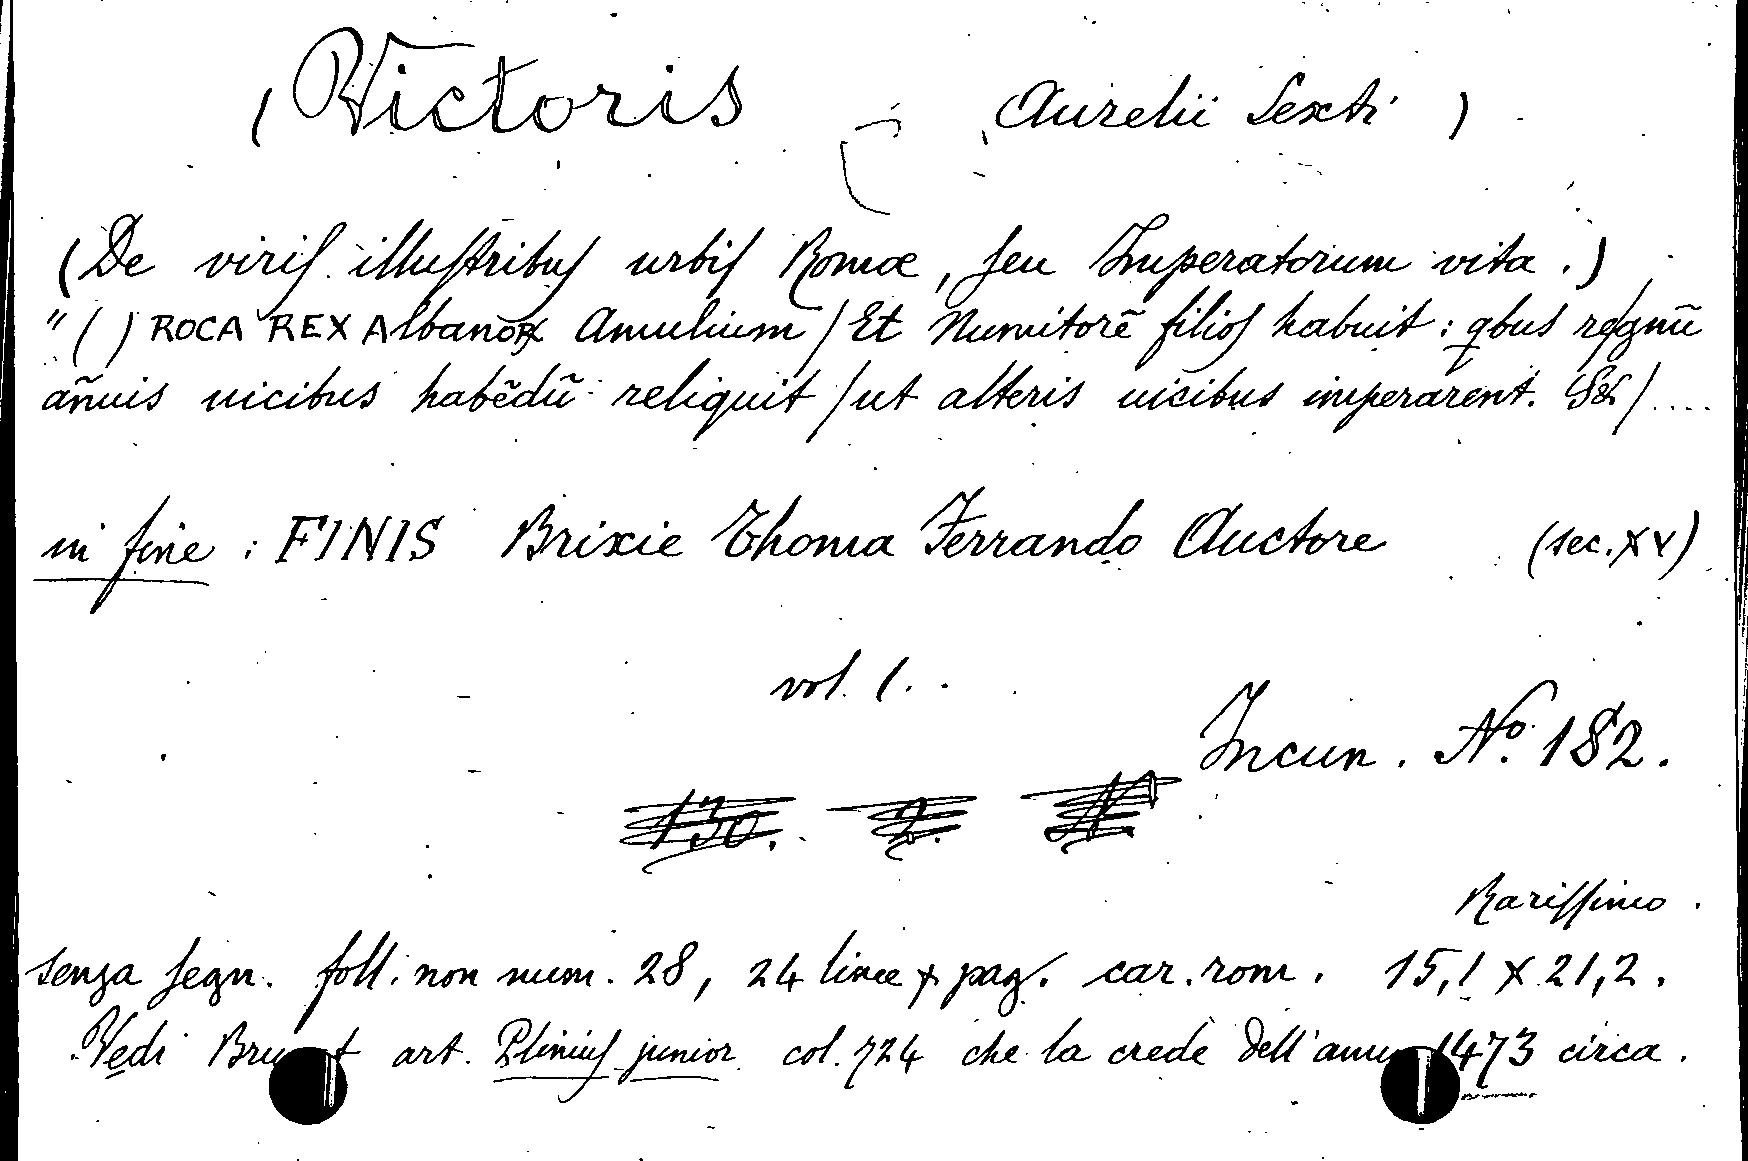 (Victoris (Aurelii Sexti)
(De viris illustribus urbis Romæ, seu Imperatorum vita.)
"( ) ROCA REX Albanoꝝ Amulium / Et Numitorē filios habuit: qbus regnū
añuis uicibus habēdū reliquit / ut alteris uicibus imperarent. &/....
in fine: FINIS Brixie Thoma Ferrando Auctore (sec. XV)
vol. 1.
Incun. Nº. 182.
130. 2.
Rarissimo.
senza segn. foll. non num. 28, 24 linee p pag. car. rom. 15,1 x 21,2.
Vedi art. Plinius junior col. 724 che la crede dell' 1473 circa.